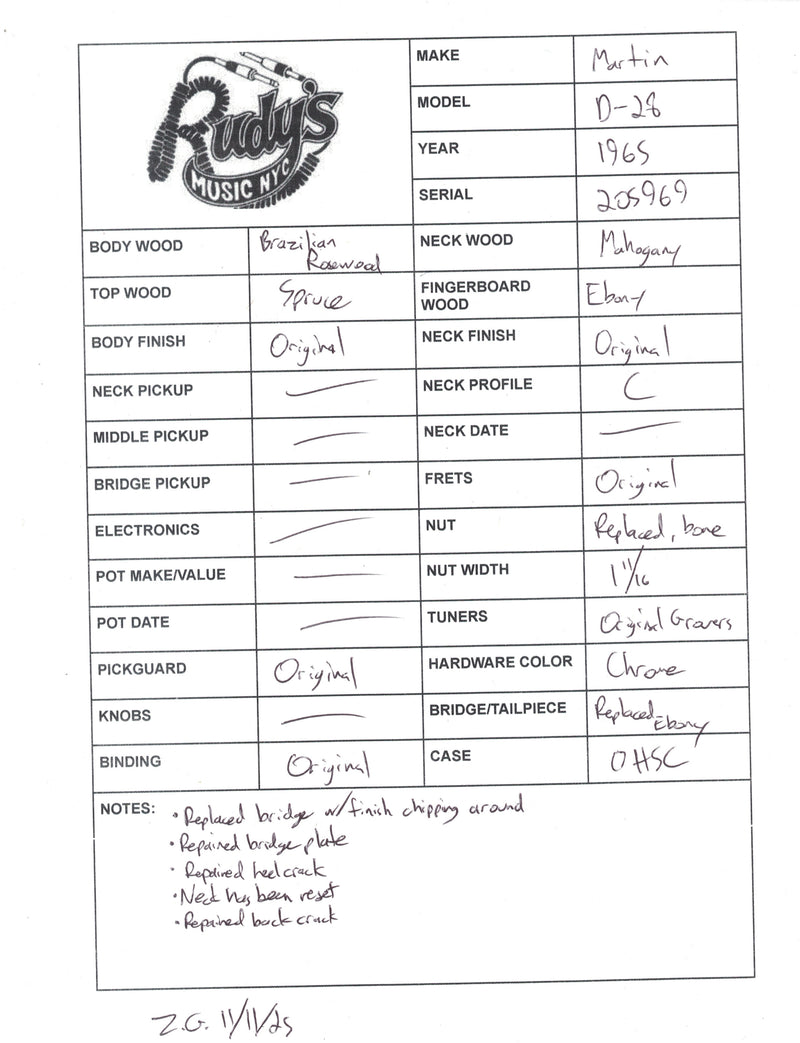 Rudy's
MUSIC NYC
MAKE Martin
MODEL D-28
YEAR 1965
SERIAL 205969
BODY WOOD Brazilian Rosewood
NECK WOOD Mahogany
TOP WOOD Spruce
FINGERBOARD WOOD Ebony
BODY FINISH Original
NECK FINISH Original
NECK PICKUP —
NECK PROFILE C
MIDDLE PICKUP —
NECK DATE —
BRIDGE PICKUP —
FRETS Original
ELECTRONICS —
NUT Replaced, bone
POT MAKE/VALUE —
NUT WIDTH 1 11/16
POT DATE —
TUNERS Original Grovers
PICKGUARD Original
HARDWARE COLOR Chrome
KNOBS —
BRIDGE/TAILPIECE Replaced-Ebony
BINDING Original
CASE OHSC
NOTES: • Replaced bridge w/finish chipping around
• Repaired bridge plate
• Repaired heel crack
• Neck has been reset
• Repaired back crack
Z.G. 11/11/25